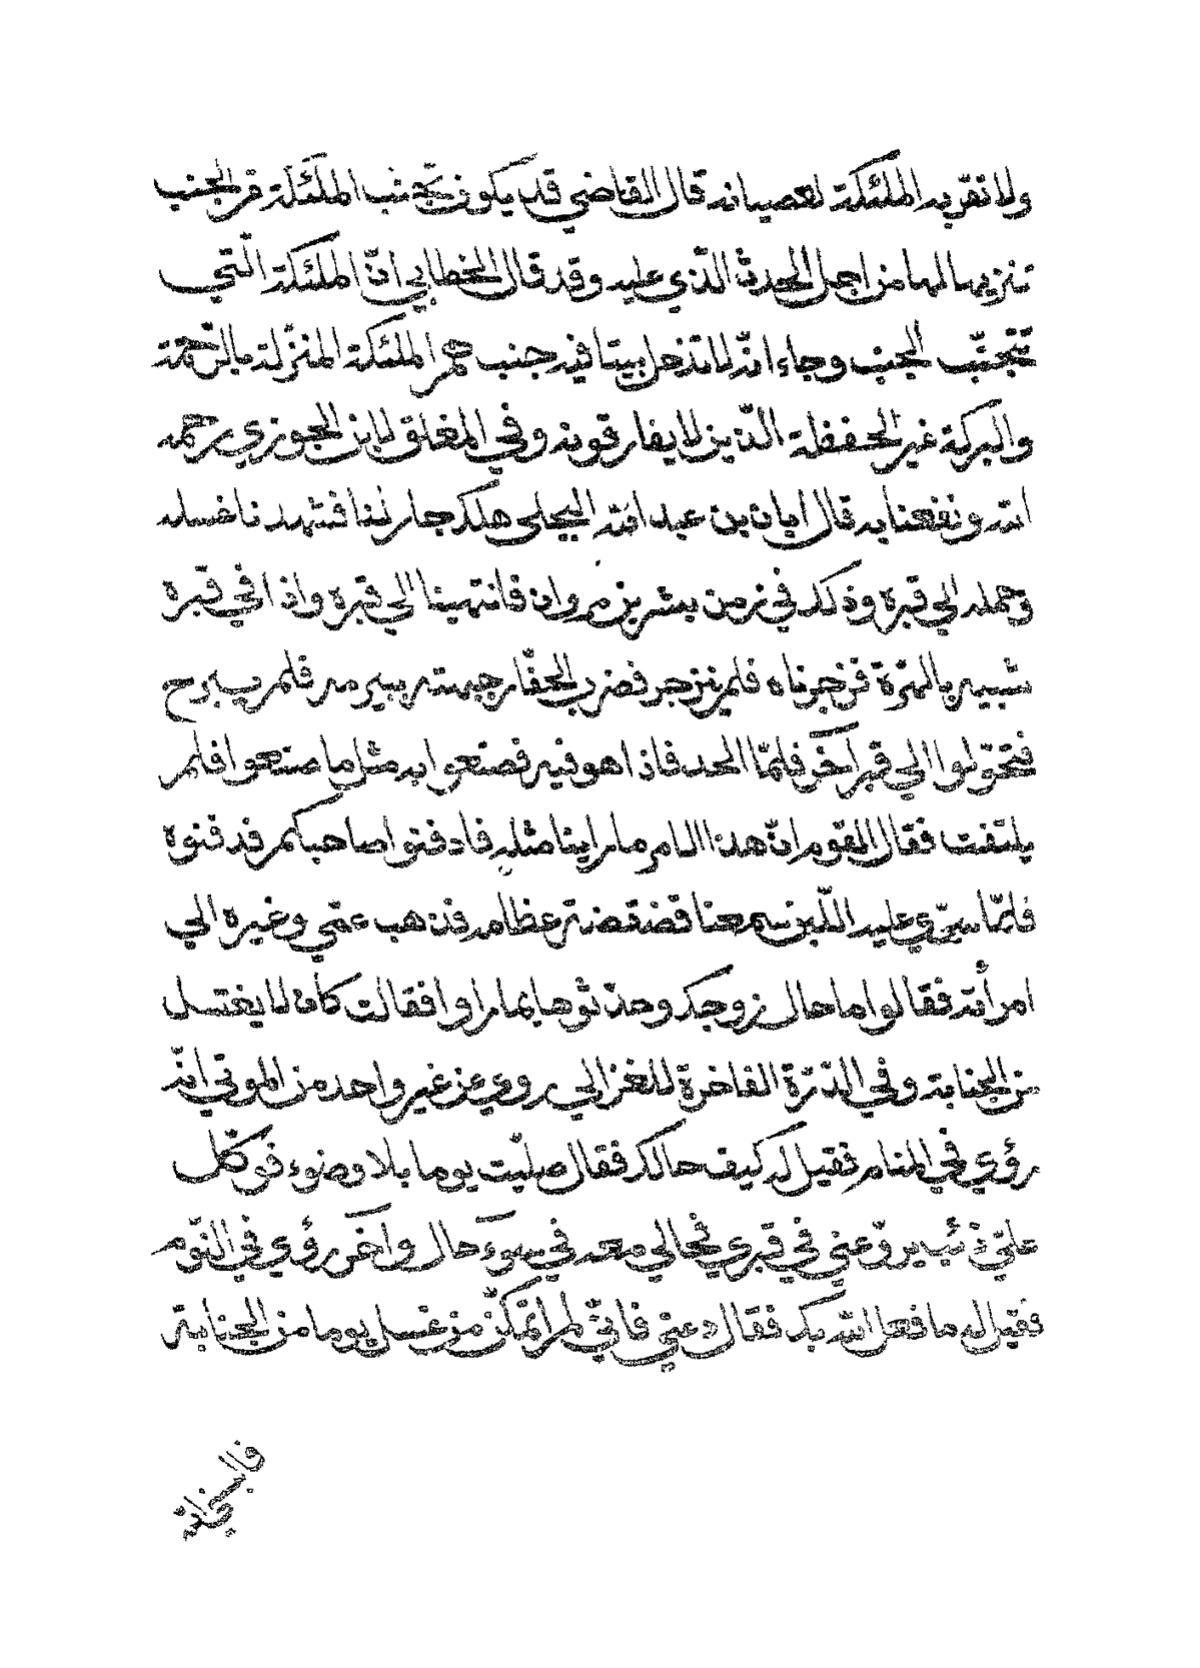 ولا تقربه الملئكة لعصيانه قال القاضي قد يكون تجنب الملئكة من الجنب
تنزيها لها من اجل الحدث الذي عليه وقد قال الخطابي انّ الملئكة الّتي
تتجنّب الجنب وجاء انّه لا تدخل بيتا فيه جنب هم الملئكة المنزلة بالرّحمة
والبركة غير الحفظة الذين لا يفارقونه وفي المغلق لابن الجوزي رحمه
الله ونفعنا به قال ابان بن عبد الله البجلي هلك جار لنا فشهدنا غسله
وحمله الي قبره وذلك في زمن بشر بن مروان فانتهينا الي قبره واذا في قبره
شبيه بالهرّة فزجرناه فلم ينزجر فضرب الحفّار جبهته ببيرمه فلم يبرح
فتحوّلوا الي قبر آخر فلمّا الحد فاذا هو فيه فصنعوا به مثل ما صنعوا فلم
يلتفت فقال القوم انّ هذا الامر ما راينا مثله فادفنوا صاحبكم فدفنوه
فلمّا سوّي عليه اللّبن سمعنا قضقضة عظامه فذهب عمّي وغيره الي
امرأته فقالوا ما حال زوجك وحدّثوها بما راوا فقالت كان لا يغتسل
من الجنابة وفي الدّرّة الفاخرة للغزالي روي عن غير واحد من الموتي انّه
رؤي في المنام فقيل له كيف حالك فقال صلّيت يوما بلا وضوء فوكّل
عليّ ذئب يروّعني في قبري فحالي معه في سوء حال وآخر رؤي في النّوم
فقيل له ما فعل الله بك فقال دعني فانّي لم اتمكّن من غسل يوما من الجنابة